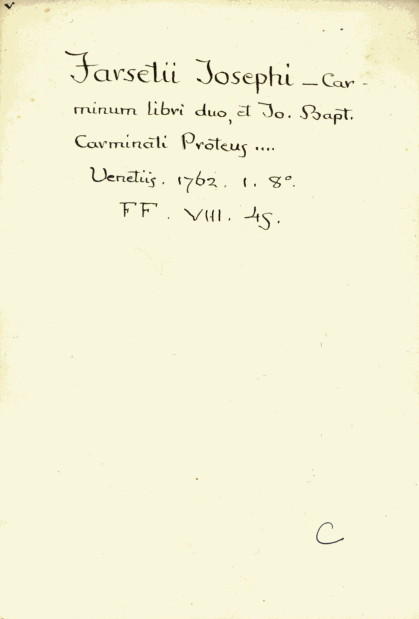 Farsetii Josephi — Car-
minum libri duo, et Jo. Bapt.
Carminati Proteus ....
Venetiis. 1762. 1. 8°.
FF. VIII. 45.
C